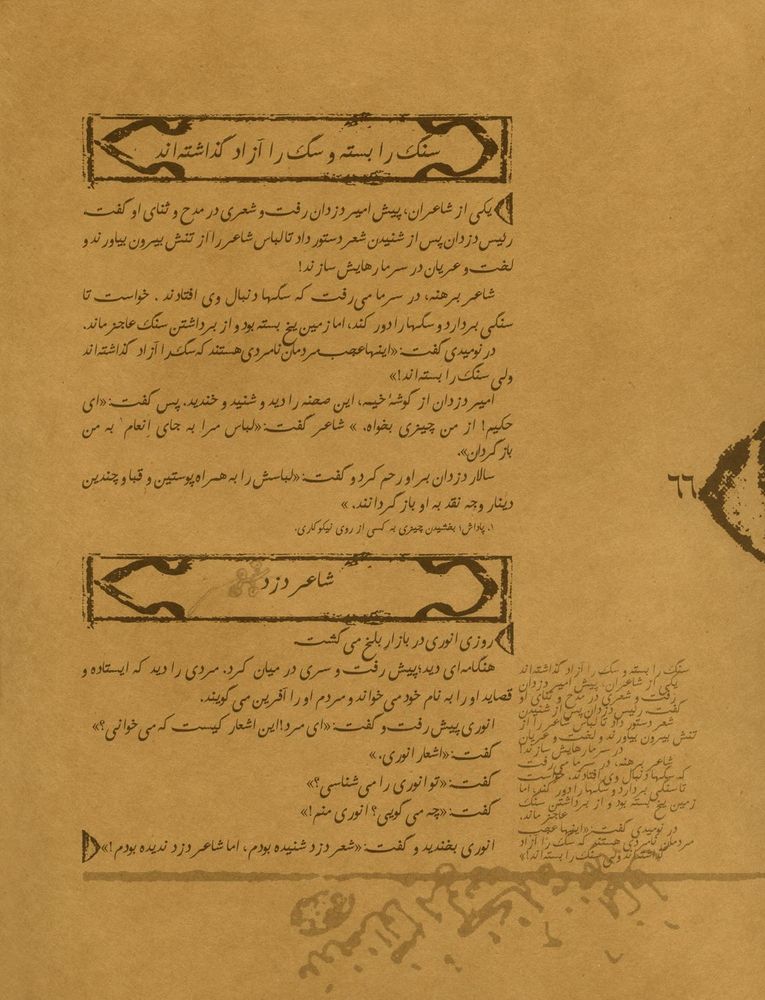 سنگ را بسته و سگ را آزاد گذاشته‌اند
یکی از شاعران، پیش امیر دزدان رفت و شعری در مدح و ثنای او گفت.
رئیس دزدان پس از شنیدن شعر دستور داد تا لباس شاعر را از تنش بیرون بیاورند و
لخت و عریان در سرما رهایش سازند!
شاعر برهنه، در سرما می‌رفت که سگها دنبال وی افتادند. خواست تا
سنگی بردارد و سگها را دور کند، اما زمین یخ بسته بود و از برداشتن سنگ عاجز ماند.
در نومیدی گفت: «اینها عجب مردمان نامردی هستند که سگ را آزاد گذاشته‌اند
ولی سنگ را بسته‌اند!»
امیر دزدان از گوشهٔ خیمه، این صحنه را دید و شنید و خندید. پس گفت: «ای
حکیم! از من چیزی بخواه.» شاعر گفت: «لباس مرا به جای اِنعام۱ به من
بازگردان».
سالار دزدان بر او رحم کرد و گفت: «لباسش را به همراه پوستین و قبا و چندین
دینار وجه نقد به او بازگردانند.»
۱. پاداش؛ بخشیدن چیزی به کسی از روی نیکوکاری.
۶۶
شاعر دزد
روزی انوری در بازار بلخ می‌گشت.
هنگامه‌ای دید؛ پیش رفت و سری در میان کرد. مردی را دید که ایستاده و
قصاید او را به نام خود می‌خواند و مردم او را آفرین می‌گویند.
انوری پیش رفت و گفت: «ای مرد! این اشعار کیست که می‌خوانی؟»
گفت: «اشعار انوری.»
گفت: «تو انوری را می‌شناسی؟»
گفت: «چه می‌گویی؟ انوری منم!»
انوری بخندید و گفت: «شعر دزد شنیده بودم، اما شاعر دزد ندیده بودم!»
سنگ را بسته و سگ را آزاد گذاشته‌اند
یکی از شاعران، پیش امیر دزدان
رفت و شعری در مدح و ثنای او
گفت. رئیس دزدان پس از شنیدن
شعر دستور داد تا لباس شاعر را از
تنش بیرون بیاورند و لخت و عریان
در سرما رهایش سازند!
شاعر برهنه، در سرما می‌رفت
که سگها دنبال وی افتادند. خواست
تا سنگی بردارد و سگها را دور کند، اما
زمین یخ بسته بود و از برداشتن سنگ
عاجز ماند.
در نومیدی گفت: «اینها عجب
مردمان نامردی هستند که سگ را آزاد
گذاشته‌اند ولی سنگ را بسته‌اند!»